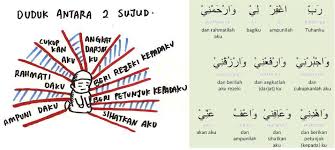 DUDUK ANTARA 2 SUJUD.
CUKUP
KAN
AKU
ANGKAT
DARJAT
KU
RAHMATI
DAKU
BERI REZEKI KEPADAKU
AMPUNI DAKU
BERI PETUNJUK KEPADAKU
SIHATKAN AKU
رَبِّ اغْفِرْ لِيْ وَارْحَمْنِيْ
dan rahmatilah aku
bagiku
ampunilah
Tuhanku
وَاجْبُرْنِيْ وَارْفَعْنِيْ وَارْزُقْنِيْ
dan berilah aku rezeki
dan angkatlah (darjat) ku
وَاهْدِنِيْ وَعَافِنِيْ وَاعْفُ عَنِّيْ
akan aku
dan ampunilah
dan sihatkanlah aku
dan berilah petunjuk (kepada) ku